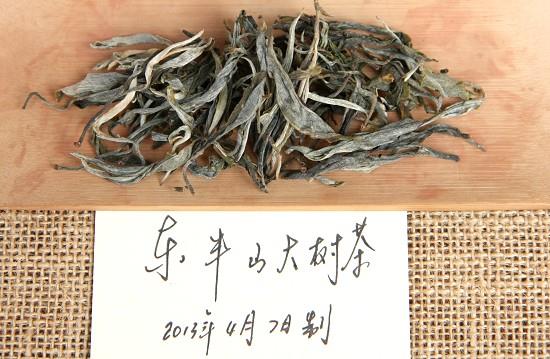 东半山大树茶
2013年4月7日制